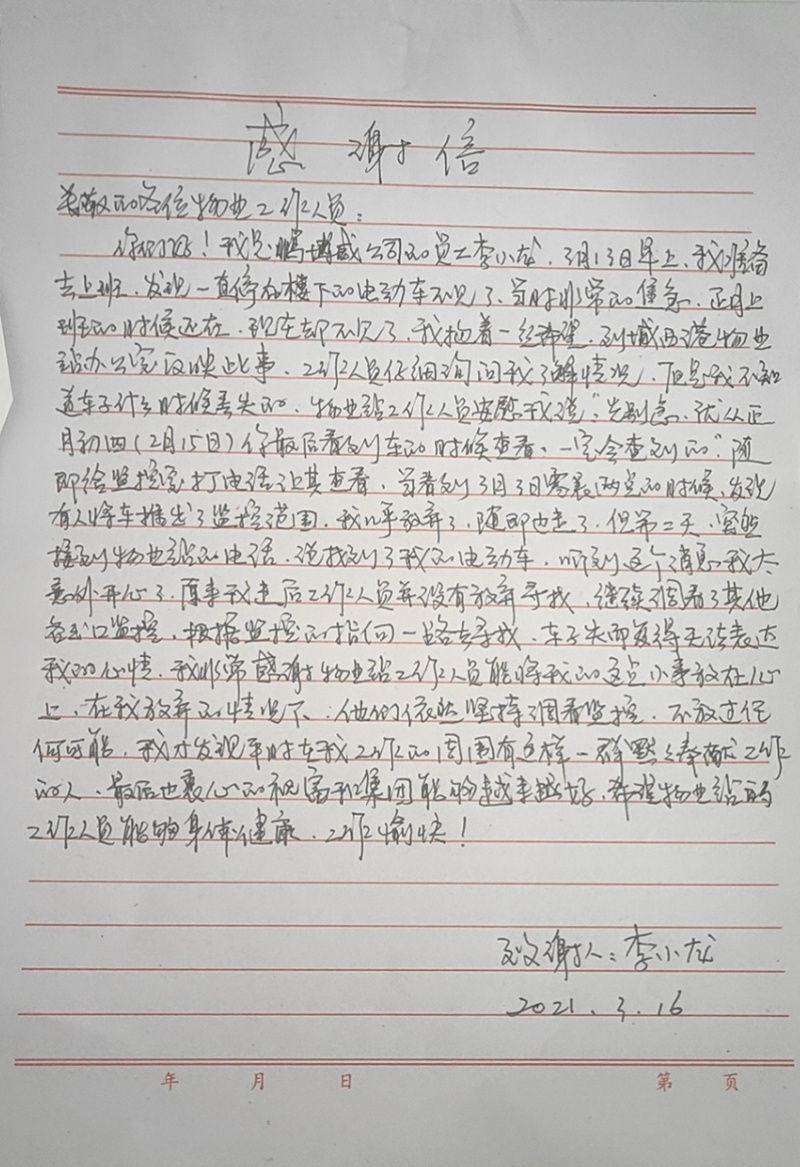 感谢信
尊敬的各位物业工作人员：
你们好！我是鹏博威公司的员工李小龙，3月13日早上，我准备
去上班，发现一直停在楼下的电动车不见了，当时非常的焦急，正月上
班的时候还在，现在却不见了，我抱着一丝希望，到城西港物业
站办公室反映此事，工作人员仔细询问我了解情况，但是我不知
道车子什么时候丢失的，物业站工作人员安慰我说："先别急，就从正
月初四（2月15日）你最后看到车的时候查看，一定会查到的"随
即给监控室打电话让其查看，当看到3月3日零晨两点的时候，发现
有人将车推出了监控范围，我几乎放弃了，随即也走了，但第二天，突然
接到物业站的电话，说找到了我的电动车，听到这个消息我太
意外开心了，原来我走后工作人员并没有放弃寻找，继续调看了其他
各出口监控，根据监控的指向一路去寻找，车子失而复得无法表达
我的心情，我非常感谢物业站工作人员能将我的这点小事放在心
上，在我放弃的情况下，他们依然坚持调看监控，不放过任
何可能，我才发现平时在我工作的周围有这样一群默默奉献工作
的人，最后也衷心的祝富和集团能够越来越好，希望物业站的
工作人员能够身体健康，工作愉快！
致谢人：李小龙
2021.3.16
年 月 日 第 页